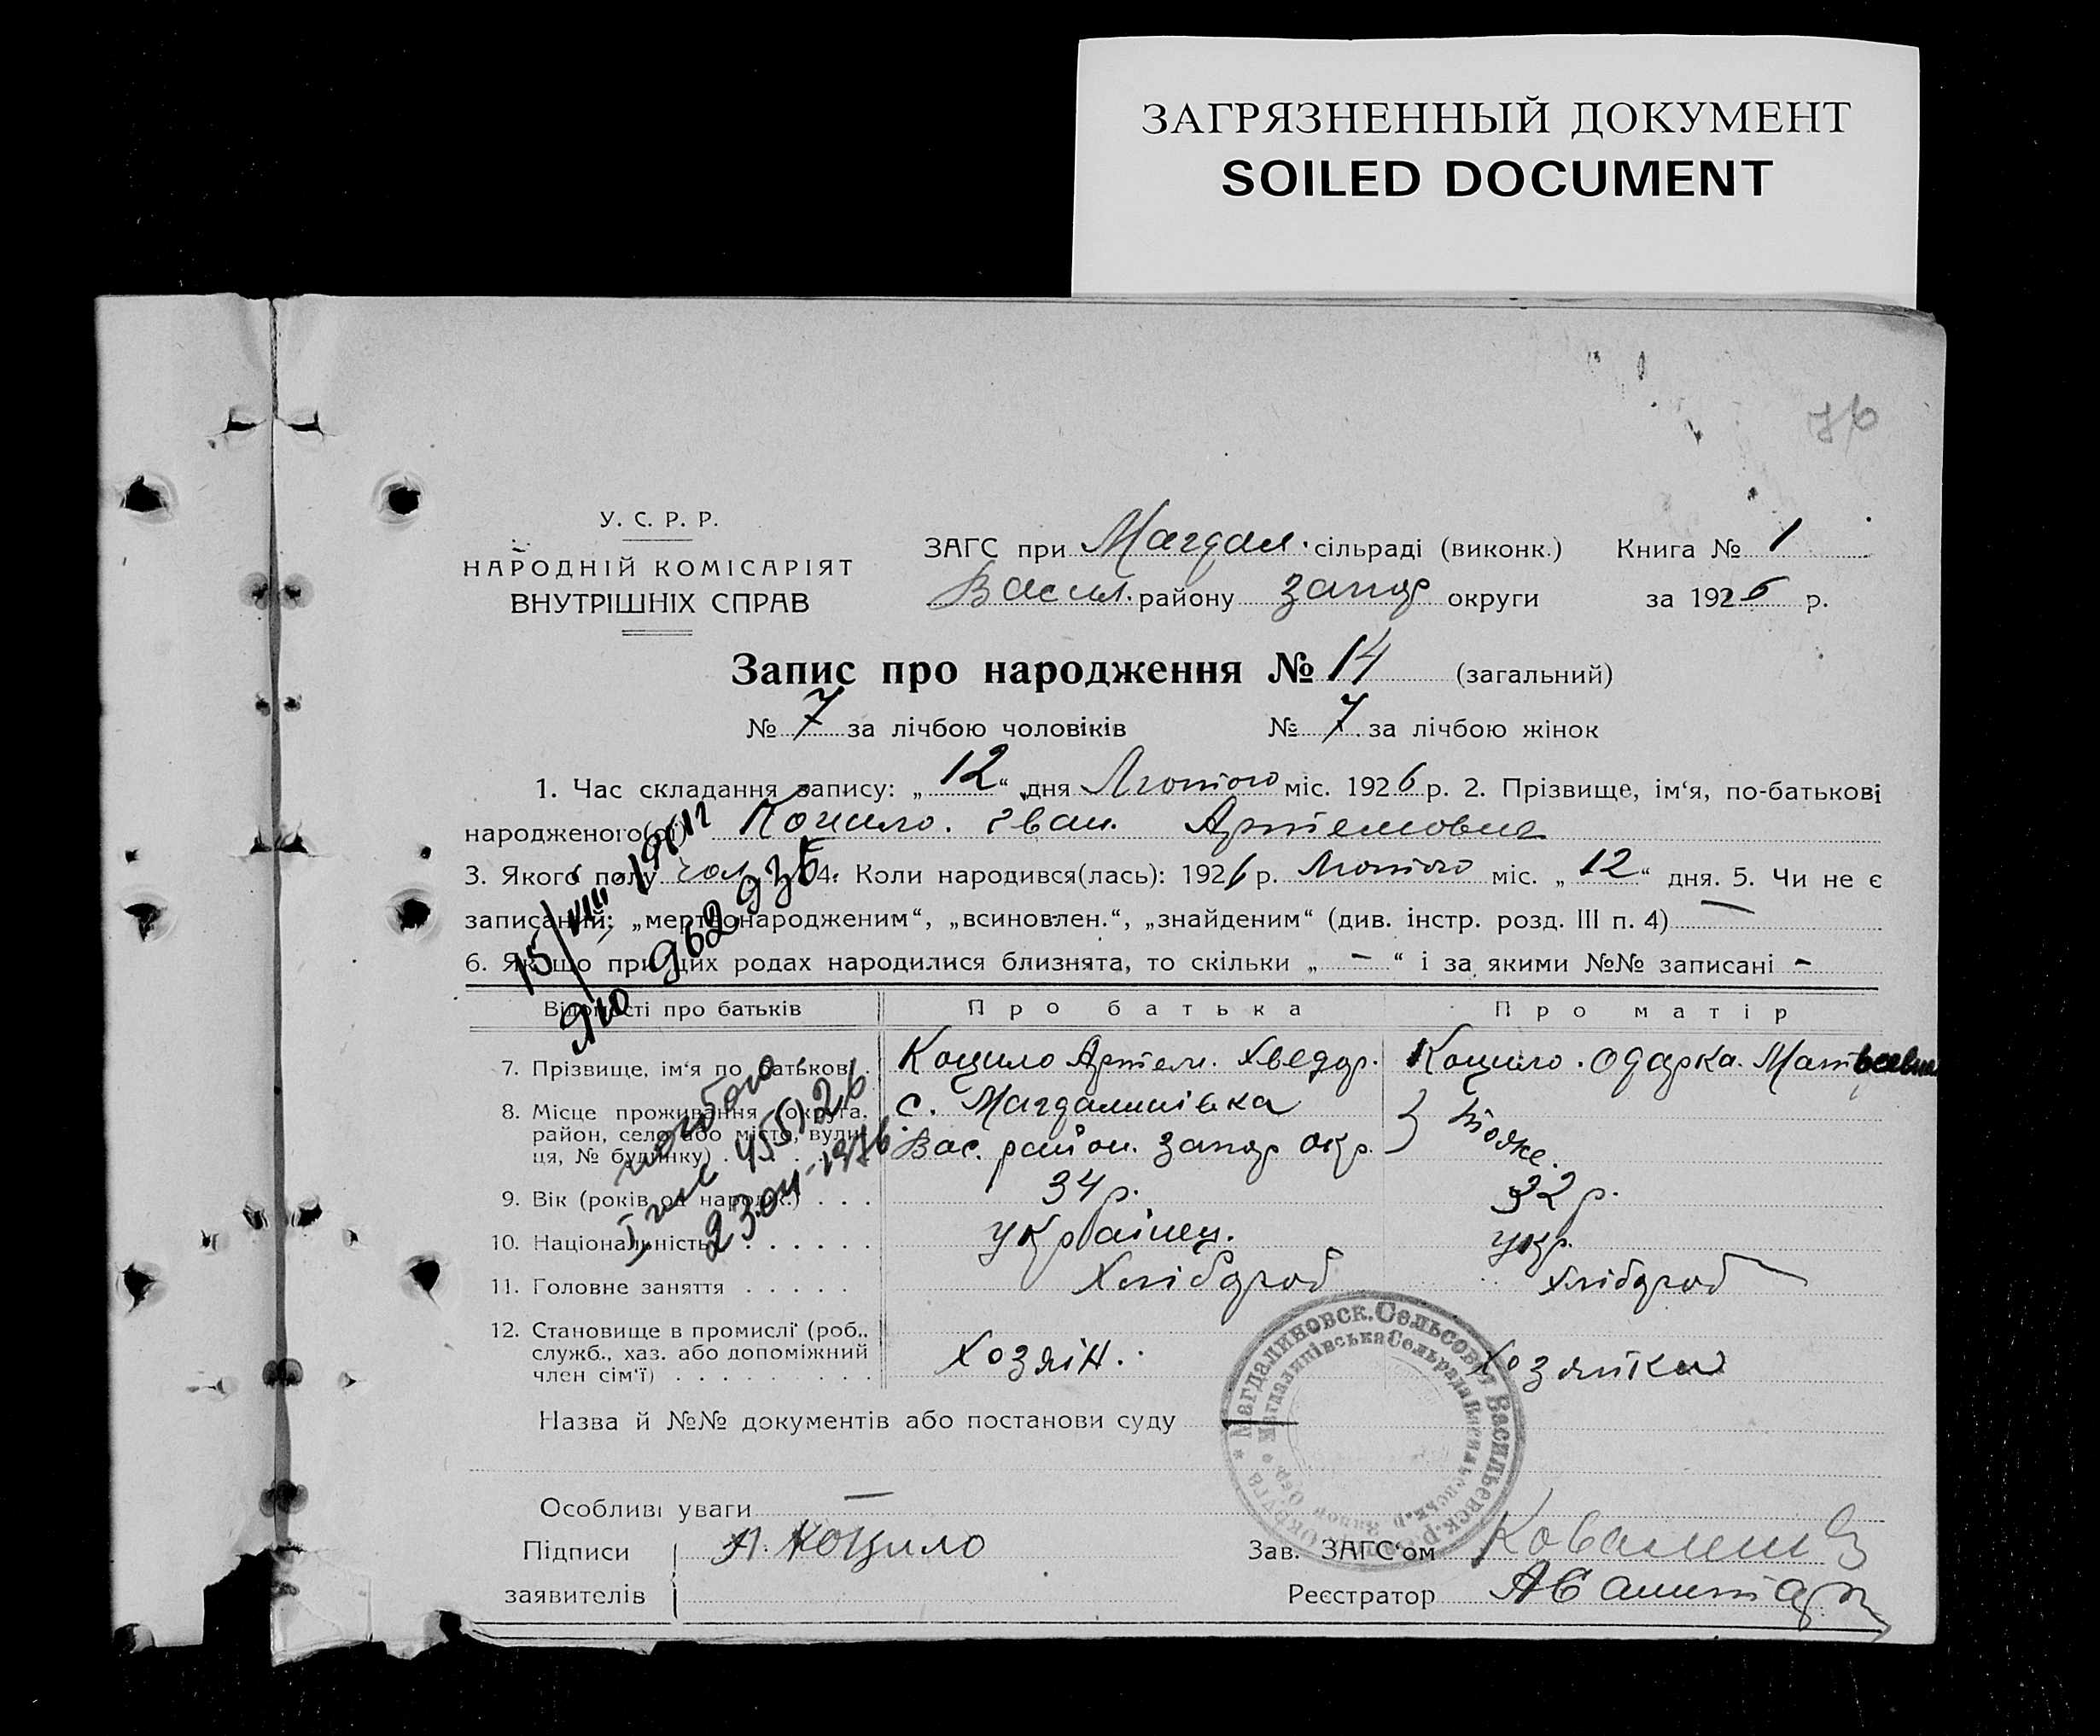 ЗАГРЯЗНЕННЫЙ ДОКУМЕНТ
SOILED DOCUMENT
У. С. Р. Р.
НАРОДНІЙ КОМІСАРІЯТ
ВНУТРІШНІХ СПРАВ
ЗАГС при Магдал. сільраді (виконк.) Книга № 1
Васил. району Запор округи за 1926 р.
Запис про народження № 14 (загальний)
№ 7 за лічбою чоловіків № 7 за лічбою жінок
1. Час складання запису: „12“ дня Лютого міс. 1926 р. 2. Прізвище, ім‘я, по-батькові
народженого(ої) Коцило. Іван. Артемовиа
3. Якого полу чол 4. Коли народився(лась): 1926 р. Лютого міс. „12“ дня. 5. Чи не є
записаний: „мертвонародженим“, „всиновлен.“, „знайденим“ (див. інстр. розд. III п. 4) —
6. Якщо при цих родах народилися близнята, то скільки „ – “ і за якими №№ записані –
15/VIII 1961
962935
45512б
23.04-1976
Відомості про батьків Про батька Про матір
7. Прізвище, ім‘я по батькові . Коцило Артем. Хведор. Коцило. Одарка. Матвеевна
8. Місце проживання (округа, район, село або місто, вулиця, № будинку) с. Магдалинівка } тоже.
Вас. район. Запор окр.
9. Вік (років од народж.) . . . 34 р. 32 р.
10. Національність . . . . . . українец. укр.
11. Головне заняття . . . . . Хлібороб Хлібороб
12. Становище в промислі (роб., служб., хаз. або допоміжний член сім‘ї) . . . . . . . . Хозяін. Хозяйка
Магдалиновск. Сельсовет Васильевск. р. Округа
Магдалинівська Сельрада Василевськ. р. Запор. Окр.
Назва й №№ документів або постанови суду —
Особливі уваги —
Підписи А. Коцило Зав. ЗАГС‘ом
заявителів Реєстратор